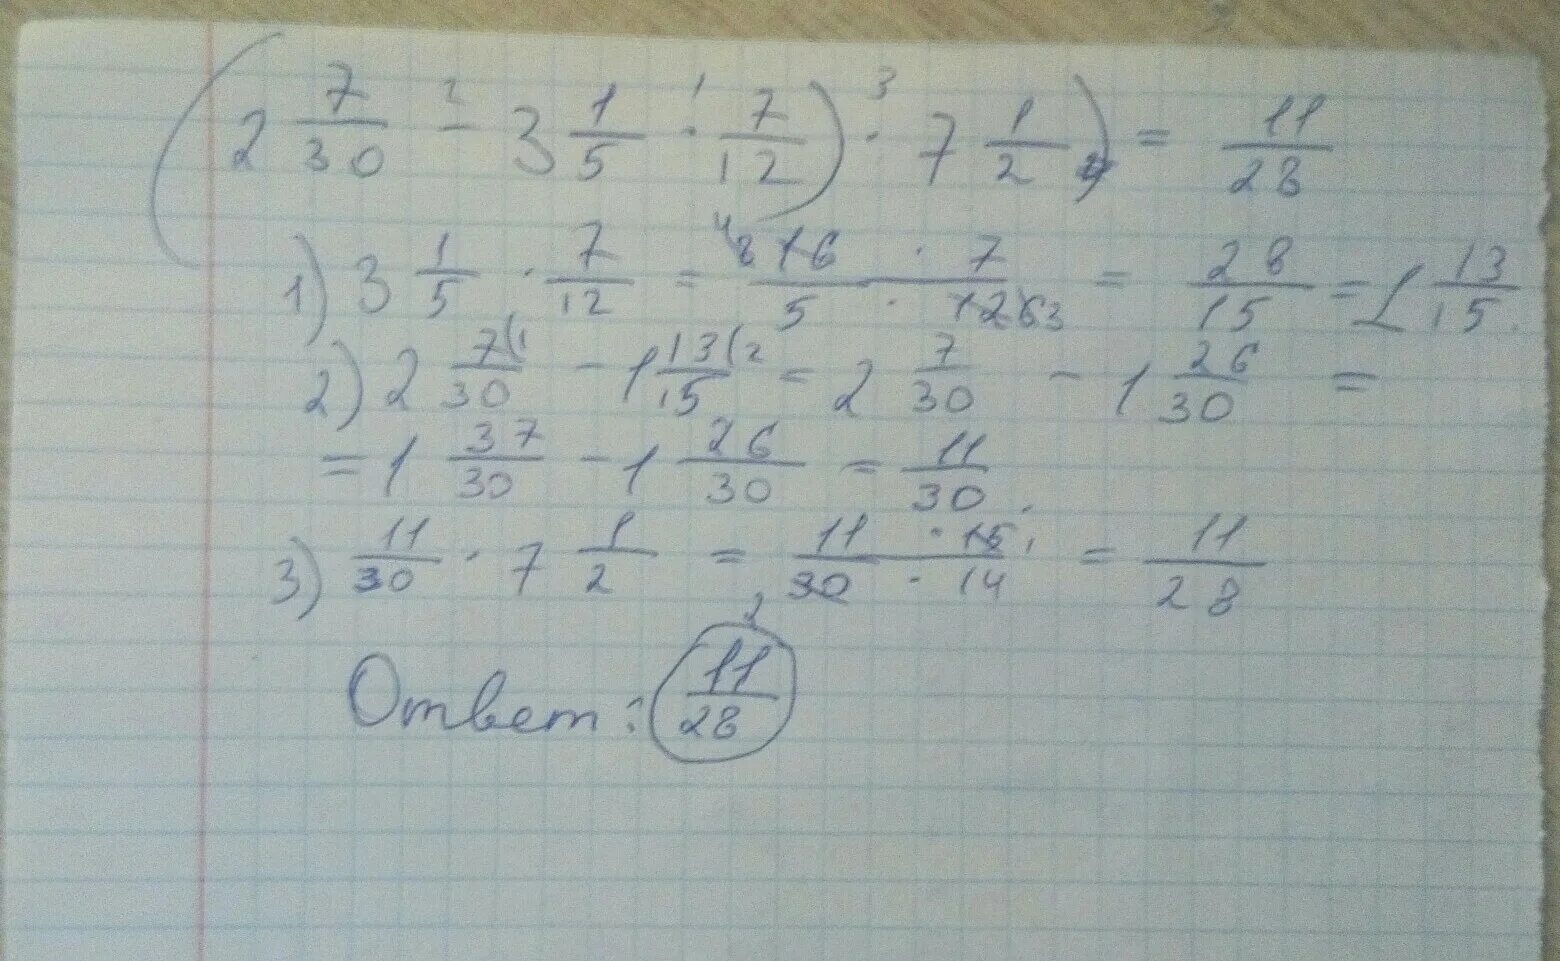 (2 7/30 - 3 1/5 · 7/12) · 7 1/2) = 11/28
1) 3 1/5 · 7/12 = 16 · 7 / 5 · 12 = 28/15 = 1 13/15.
2) 2 7/30 - 1 13/15 = 2 7/30 - 1 26/30 =
= 1 37/30 - 1 26/30 = 11/30.
3) 11/30 · 7 1/2 = 11 · 15 / 30 · 14 = 11/28
Ответ: 11/28